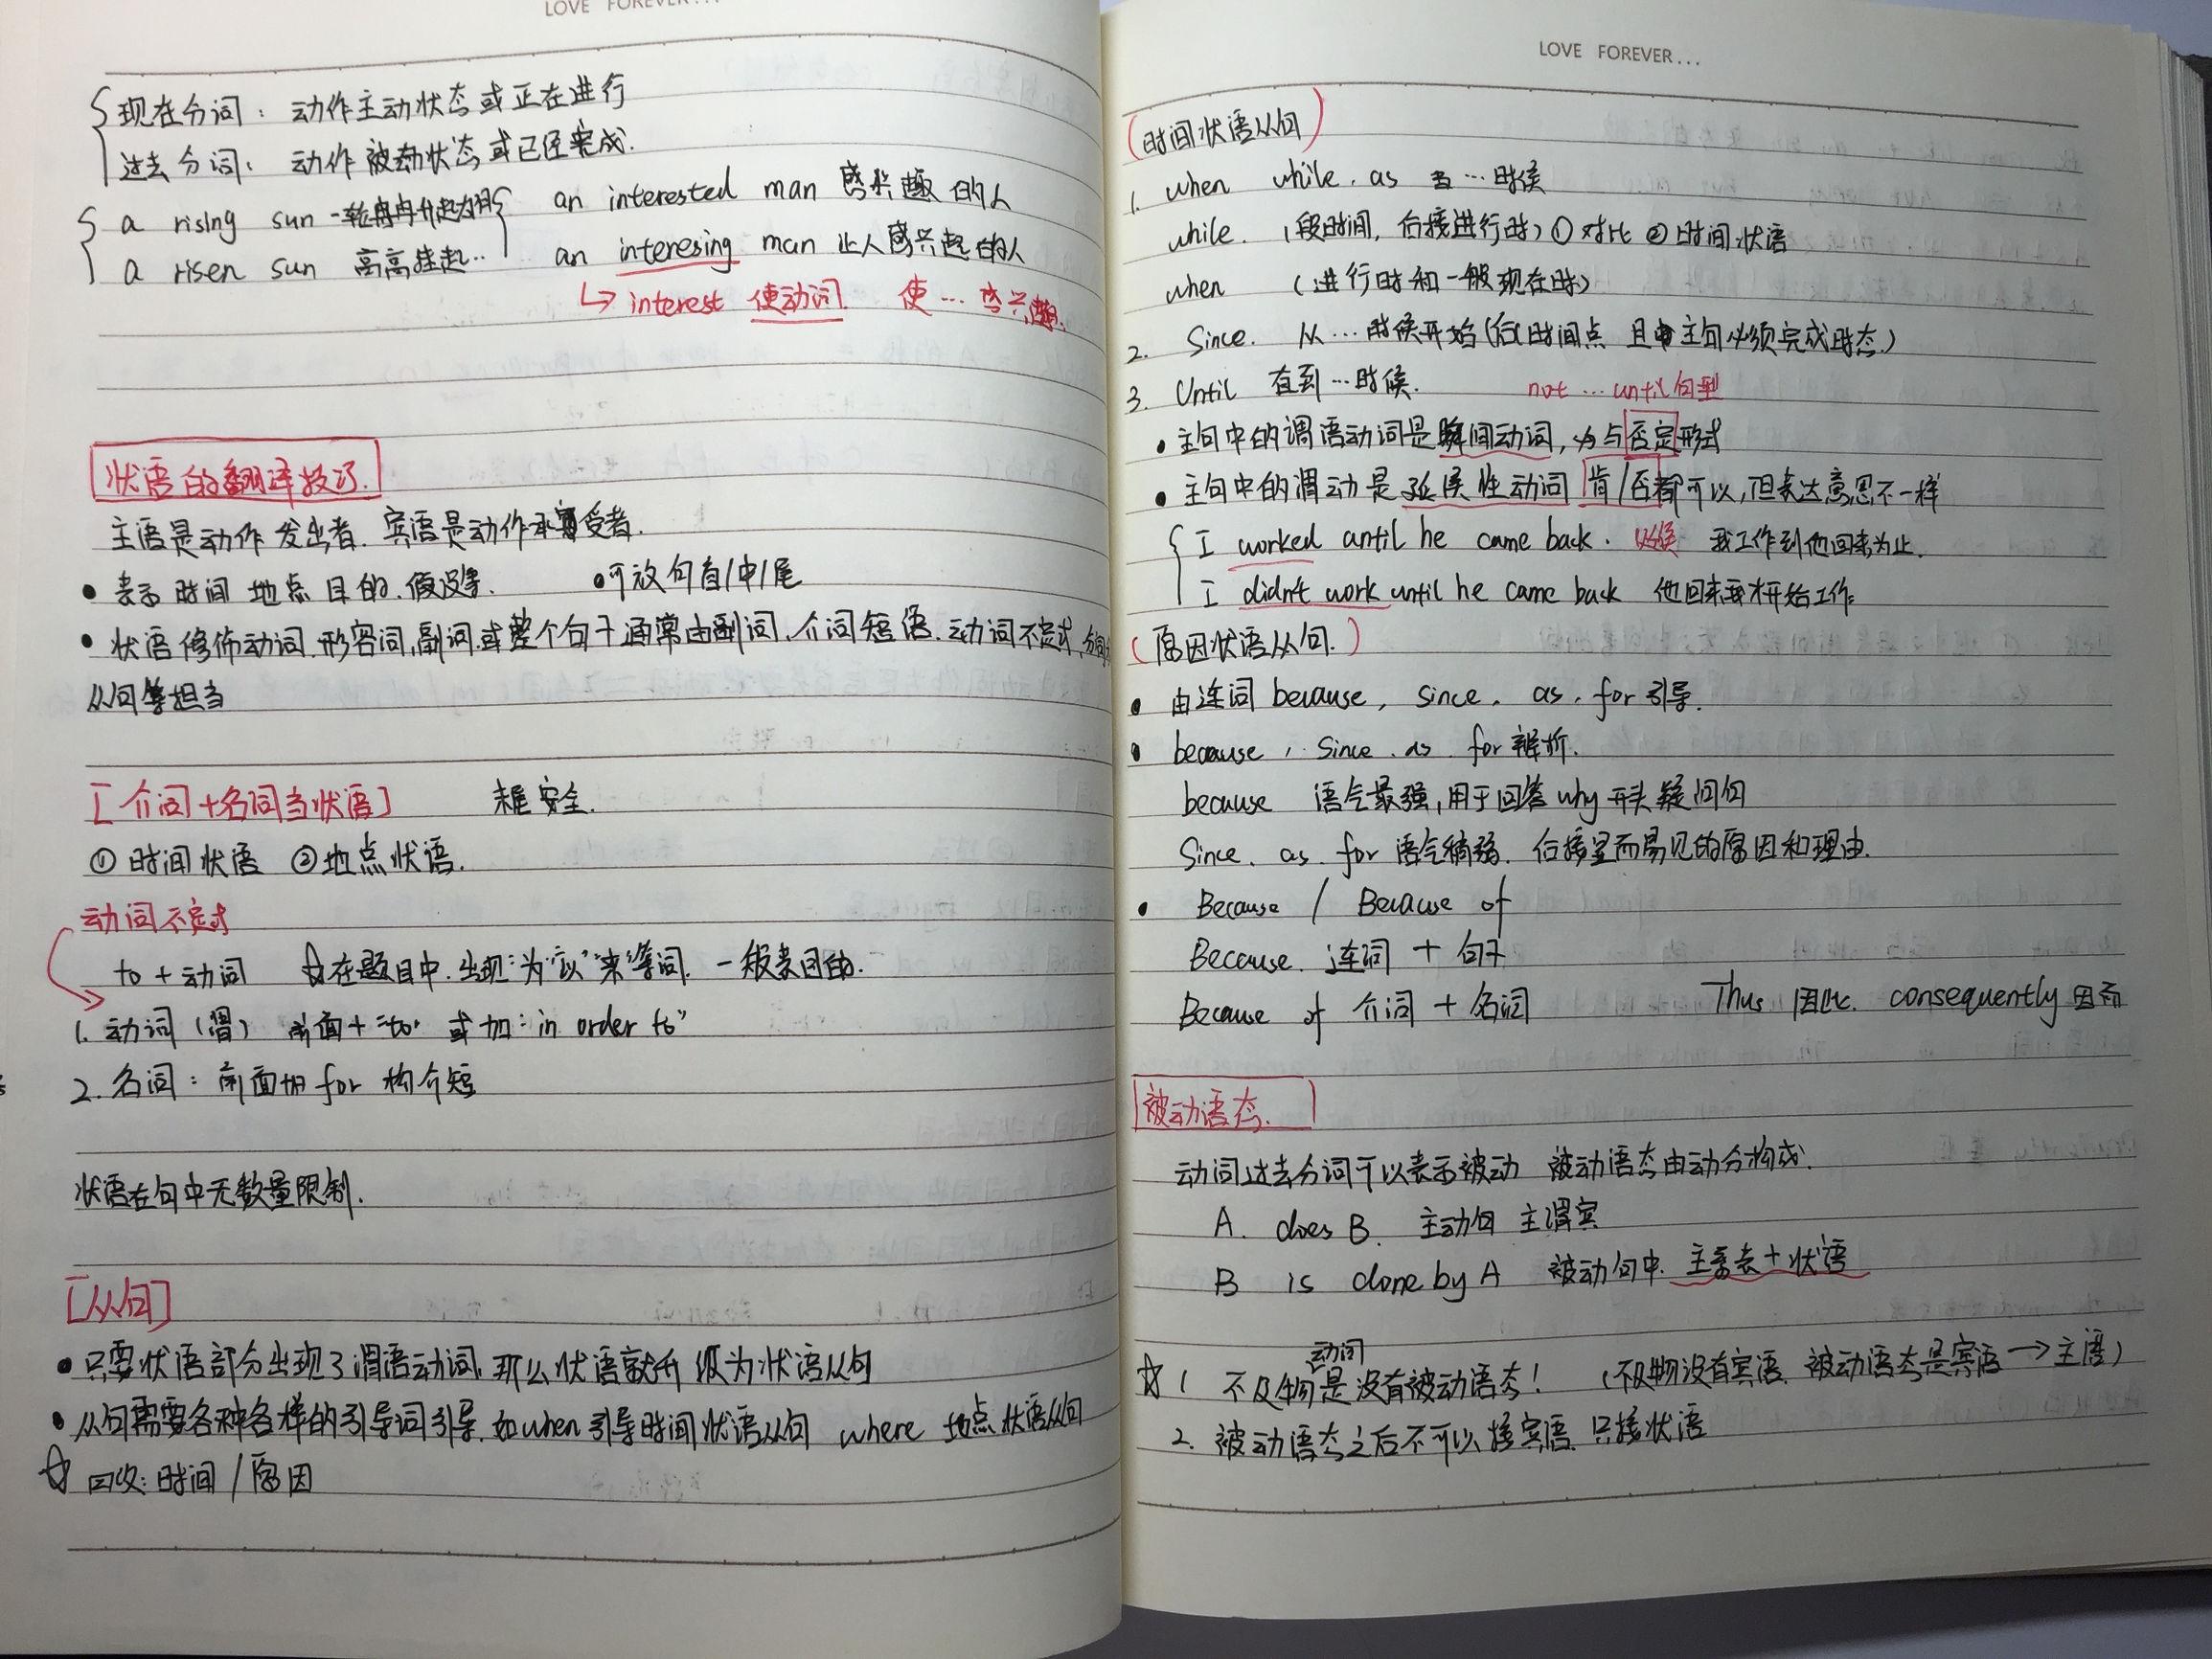 LOVE FOREVER...
现在分词：动作主动状态或正在进行
过去分词：动作被动状态或已经完成.
a rising sun 一轮冉冉升起
a risen sun 高高挂起..
an interested man 感兴趣的人
an interesing man 让人感兴起的人
↳ interest 使动词 使…感兴趣.
状语的翻译技巧.
主语是动作发出者. 宾语是动作承受者.
• 表示时间 地点 目的.假设等. •可放句首/中/尾
• 状语修饰动词.形容词,副词.或整个句子通常由副词.介词短语.动词不定式,分词
从句等担当
[介词+名词当状语] 末尾安全.
① 时间状语 ②地点状语.
动词不定式
to + 动词 ☆在题目中.出现"为""以""来"等词. 一般表目的.
1. 动词(谓) 前面+"to" 或加"in order to"
2. 名词：前面加for 构介短
状语在句中无数量限制.
[从句]
• 只要状语部分出现了谓语动词,那么状语就升级为状语从句
• 从句需要各种各样的引导词引导.如when引导时间状语从句 where 地点状语从句
☆ 时间/原因
LOVE FOREVER...
(时间状语从句)
1. when while. as 当…时候
while. (段时间, 后接进行时) ① 对比 ② 时间状语
when (进行时和一般现在时)
2. Since. 从…时候开始(后时间点 且主句必须完成时态)
3. Until 直到…时候. not … until句型
• 主句中的谓语动词是瞬间动词, 与否定形式
• 主句中的谓动是延候性动词 肯/否都可以,但表达意思不一样
I worked until he came back. 我工作到他回来为止.
I didn't work until he came back 他回来我才开始工作.
(原因状语从句.)
• 由连词 because, since. as. for 引导.
• because, Since. as. for 辨析.
because 语气最强,用于回答why开头疑问句
Since. as. for 语气稍弱. 后接显而易见的原因和理由.
• Because / Because of
Because. 连词 + 句子
Because of 介词 + 名词 Thus 因此. consequently 因而
被动语态.
动词过去分词可以表示被动 被动语态由动分构成.
A. does B. 主动句 主谓宾
B is done by A 被动句中. 主系表+状语
☆ 1 不及物动词是没有被动语态! (不及物没有宾语. 被动语态是宾语→主语)
2. 被动语态之后不可以接宾语.只接状语